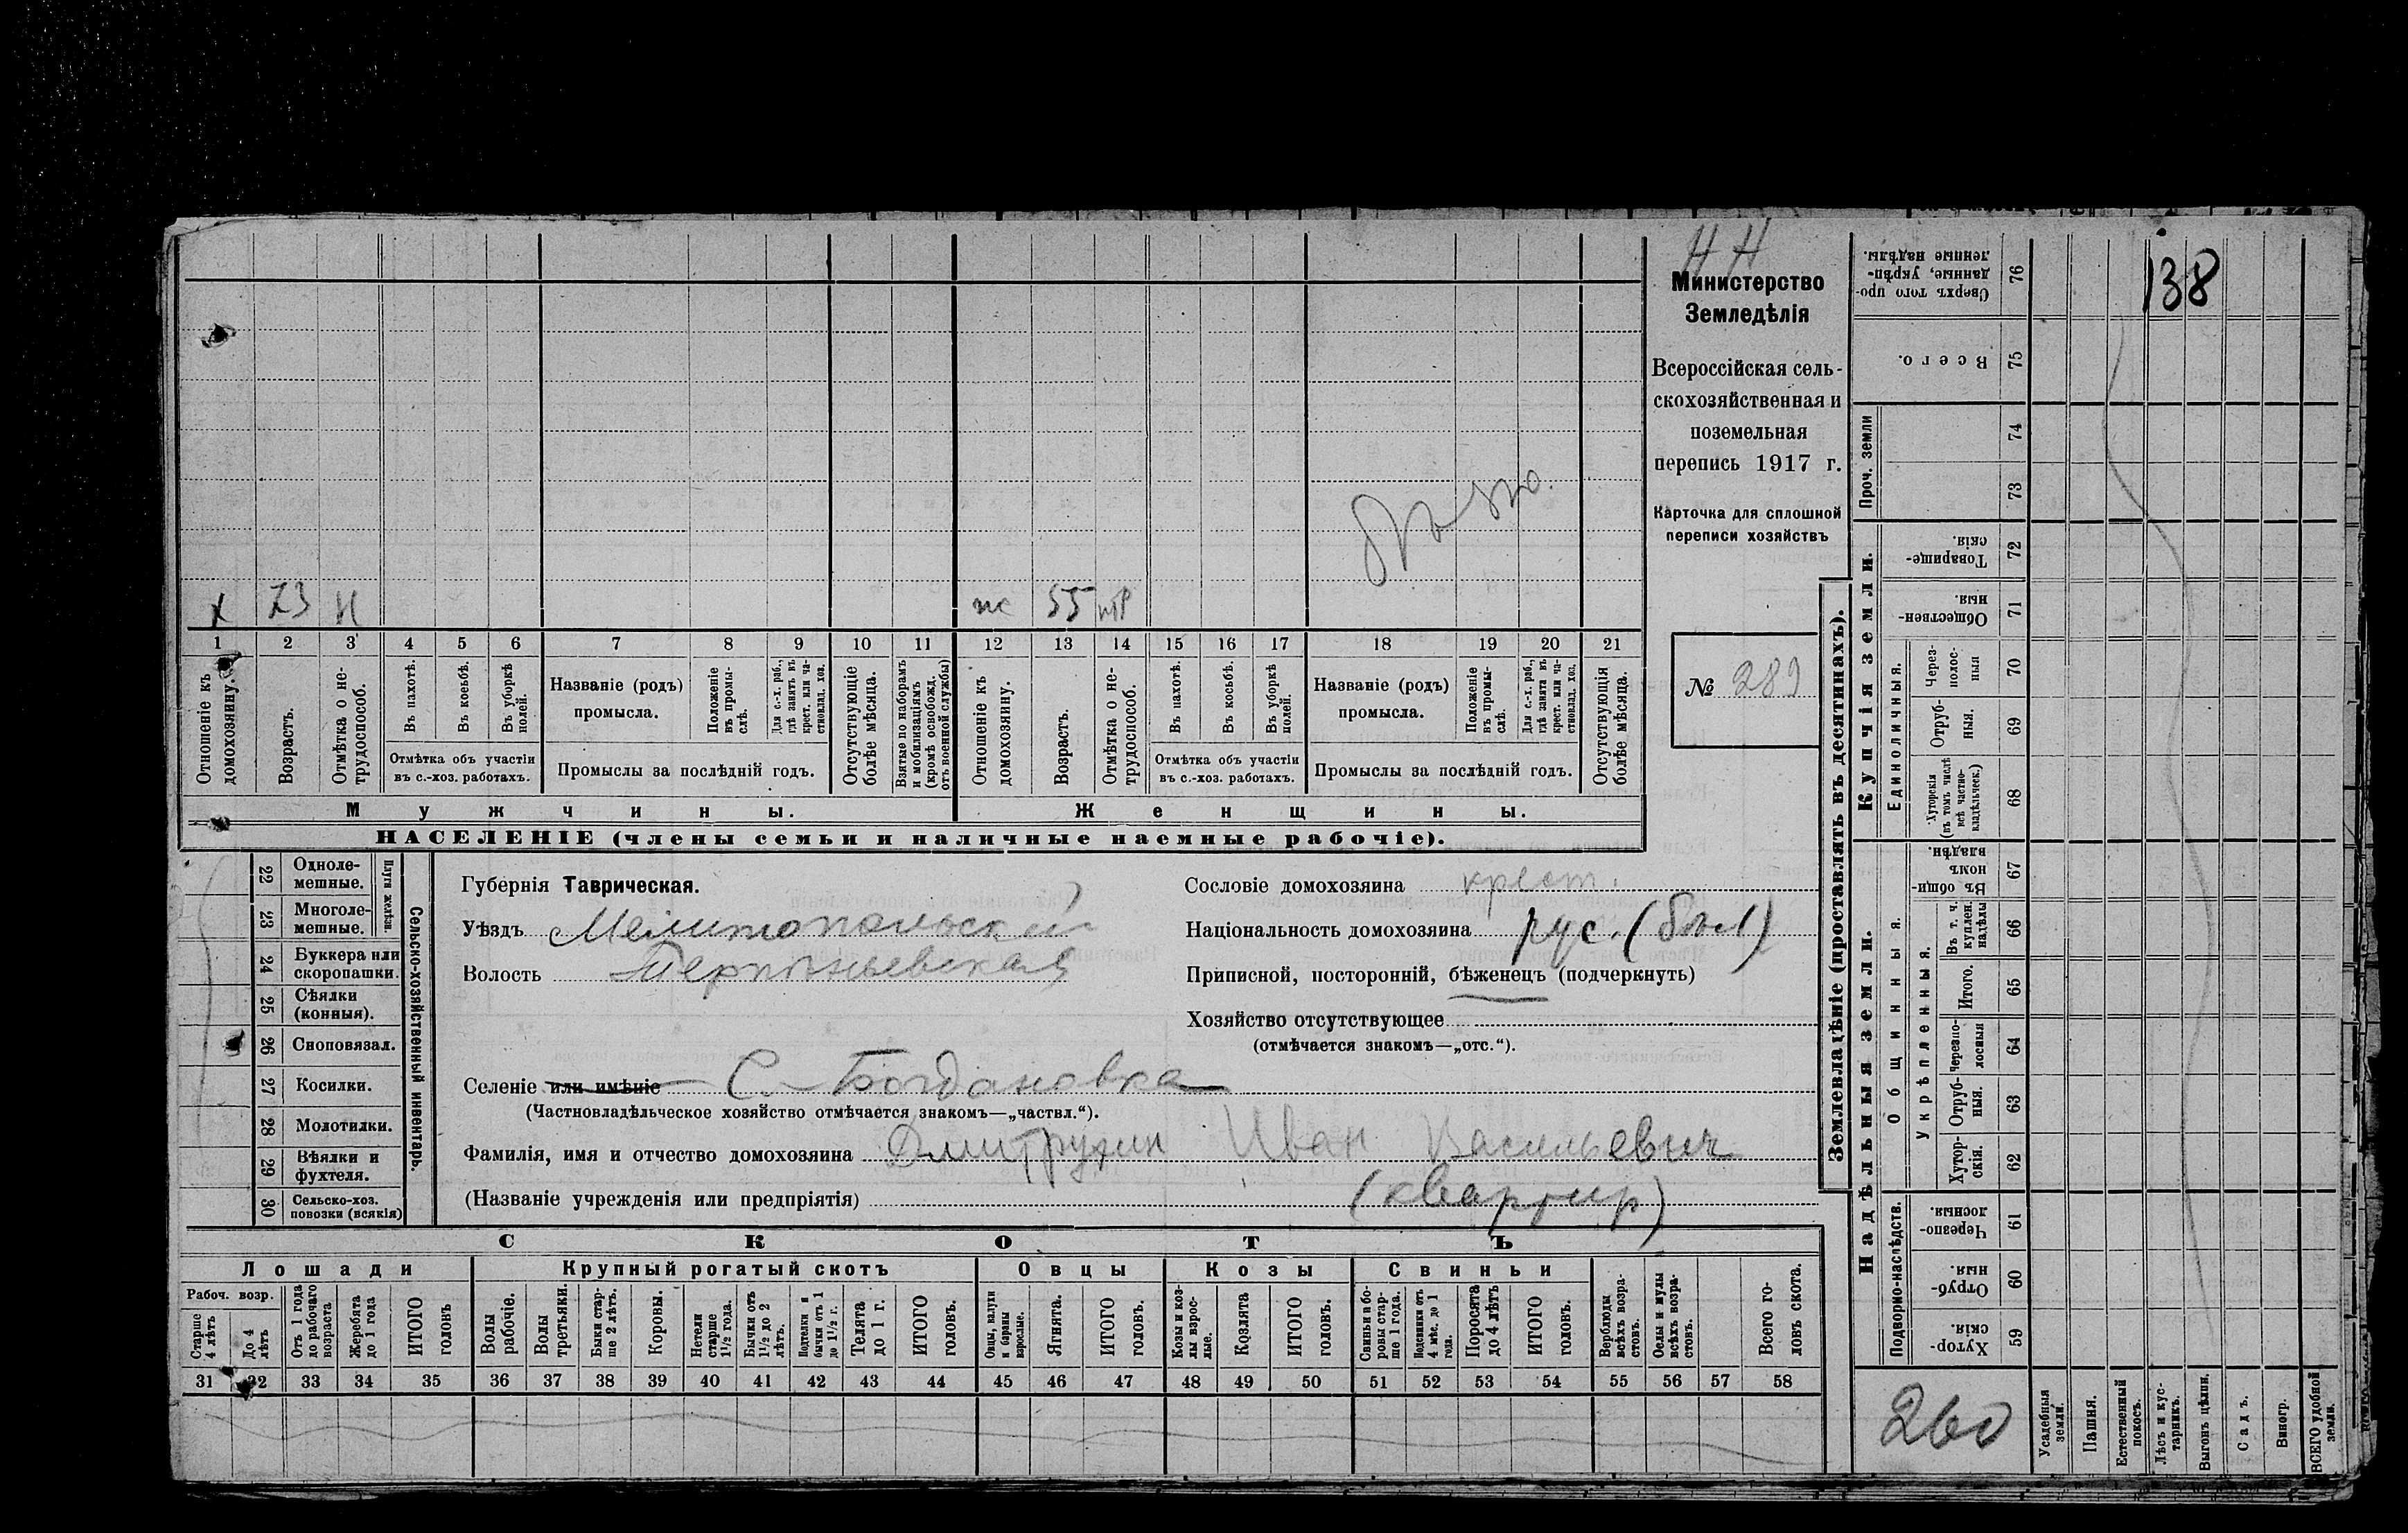 Н Н
138
Министерство
Земледѣлія
Всероссійская сель-
скохозяйственная и
поземельная
перепись 1917 г.
Карточка для сплошной
переписи хозяйствъ
№ 289
х 73 н
55
1 2 3 4 5 6 7 8 9 10 11 12 13 14 15 16 17 18 19 20 21
Отношеніе къ домохозяину.
Возрастъ.
Отмѣтка о не-трудоспособ.
Въ пахотѣ.
Въ косьбѣ.
Въ уборкѣ полей.
Отмѣтка объ участіи
въ с.-хоз. работахъ.
Названіе (родъ)
промысла.
Положеніе въ промы-слѣ.
Для с.-х. раб., гдѣ занятъ въ крест. или ча-стновлад. хоз.
Промыслы за послѣдній годъ.
Отсутствующіе болѣе мѣсяца.
Взятые по наборамъ и мобилизаціямъ (кромѣ освобожд. отъ военной службы)
Отношеніе къ домохозяину.
Возрастъ.
Отмѣтка о не-трудоспособ.
Въ пахотѣ.
Въ косьбѣ.
Въ уборкѣ полей.
Отмѣтка объ участіи
въ с.-хоз. работахъ.
Названіе (родъ)
промысла.
Положеніе въ промы-слѣ.
Для с.-х. раб., гдѣ занята въ крест. или ча-стновлад. хоз.
Промыслы за послѣдній годъ.
Отсутствующія болѣе мѣсяца.
Мужчины.
Женщины.
НАСЕЛЕНІЕ (члены семьи и наличные наемные рабочіе).
Сельско-хозяйственный инвентарь.
Плуги желѣзн.
22 Одноле-мешные.
23 Многоле-мешные.
24 Буккера или скоропашки.
25 Сѣялки (конныя).
26 Сноповязал.
27 Косилки.
28 Молотилки.
29 Вѣялки и фухтеля.
30 Сельско-хоз. повозки (всякія)
Губернія Таврическая.
Уѣздъ Мелитопольский
Волость
Селеніе или имѣніе С. Богдановка
(Частновладѣльческое хозяйство отмѣчается знакомъ—„частвл.“).
Фамилія, имя и отчество домохозяина Дмитрухин Иван Васильевич
(Названіе учрежденія или предпріятія) (квартир)
Сословіе домохозяина крест.
Національность домохозяина рус. (бѣл)
Приписной, посторонній, бѣженецъ (подчеркнуть)
Хозяйство отсутствующее
(отмѣчается знакомъ—„отс.“).
СКОТЪ
Лошади
Крупный рогатый скотъ
Овцы
Козы
Свиньи
Рабоч. возр.
Старше 4 лѣтъ
До 4 лѣтъ
Отъ 1 года до рабочаго возраста
Жеребята до 1 года
ИТОГО головъ
Волы рабочіе.
Волы третьяки.
Быки стар-ше 2 лѣтъ.
Коровы.
Нетели старше 1½ года.
Бычки отъ 1½ до 2 лѣтъ.
Подтелки и бычки отъ 1 до 1½ г.
Телята до 1 г.
ИТОГО головъ.
Овцы, валухи и бараны взрослые.
Ягнята.
ИТОГО головъ.
Козы и коз-лы взрос-лые.
Козлята
ИТОГО головъ.
Свиньи и бо-ровы стар-ше 1 года.
Подсвинки отъ 4 мѣс. до 1 года.
Поросята до 4 лѣтъ
ИТОГО головъ.
Верблюды всѣхъ возра-стовъ.
Ослы и мулы всѣхъ возра-стовъ.
Всего го-ловъ скота.
31 32 33 34 35 36 37 38 39 40 41 42 43 44 45 46 47 48 49 50 51 52 53 54 55 56 57 58
Землевладѣніе (проставлять въ десятинахъ).
Надѣльныя земли.
Купчія земли.
Проч. земли
Подворно-наслѣдств.
Общинныя.
Укрѣпленныя.
Единоличныя.
Сверхъ того про-данные, укрѣп-ленные надѣлы. 76
Всего. 75
74
73
Товарище-скія. 72
Обществен-ныя. 71
Через-полос-ныя 70
Отруб-ныя. 69
Хуторскія (въ томъ числѣ всѣ частно-владѣльческ.) 68
Въ общи-номъ владѣн. 67
Въ т. ч. куплен. надѣлы 66
Итого. 65
Черезпо-лосныя 64
Отруб-ныя. 63
Хутор-скія. 62
Черезпо-лосныя. 61
Отруб-ныя. 60
Хутор-скія. 59
260
Усадебныя земли.
Пашня.
Естественный покосъ.
Лѣсъ и кус-тарникъ.
Выгонъ цѣлин.
Садъ.
Виногр.
ВСЕГО удобной земли.